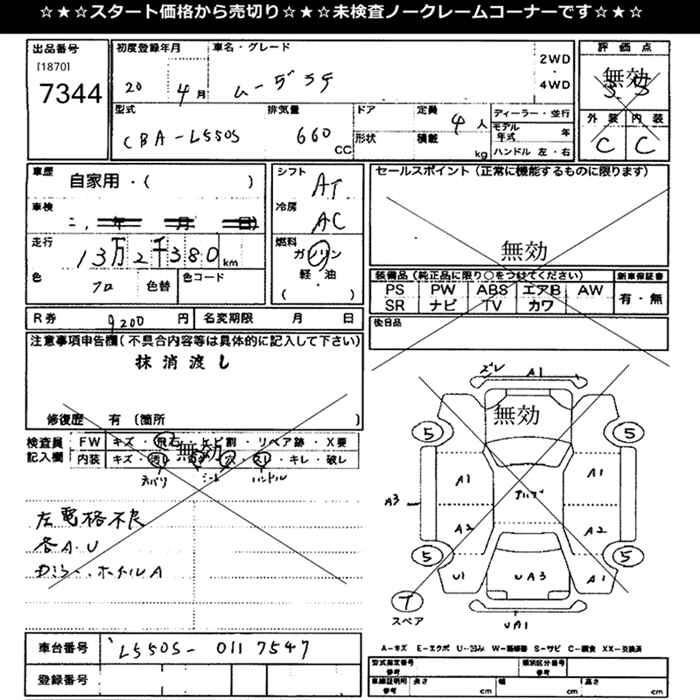 ☆★☆★スタート価格から売切り☆★☆★未検査ノークレームコーナーです☆★☆
出品番号
[1870]
7344
初度登録年月
20 4月
車名・グレード
ムーヴラテ
2WD
4WD
評価点
無効
外装 内装
C C
型式
CBA-L550S
排気量
660 CC
ドア
形状
定員
4人
積載
kg
ディーラー・並行
モデル年式 年
ハンドル 左・右
車歴
自家用・( )
車検
年 月 日
走行
13万2千380km
色
クロ
色替
色コード
シフト
AT
冷房
AC
燃料
ガソリン
軽・油
( )
セールスポイント(正常に機能するものに限ります)
無効
装備品(純正品に限り○をつけてください)
PS PW ABS エアB AW
SR ナビ TV カワ
新車保証書
有・無
後日品
R券 9200円
名変期限 月 日
注意事項申告欄(不具合内容等は具体的に記入して下さい)
抹消渡し
修復歴 有 (箇所 )
検査員記入欄
FW キズ・飛石・ヒビ割・リペア跡・X要
内装 キズ・汚れ・穴・スレ・キレ・破レ
無効
シート ハンドル
左電格不良
各A.U
ズレ A1
無効
5 5
A1 A1
A3
A2 A2
5 5
U1 UA3 A1
T
スペア
UA1
A-キズ E-エクボ U-凹み W-補修跡 S-サビ C-腐食 XX-交換済
車台番号
L550S-0117547
登録番号
型式指定番号
参考
類別区分番号
参考
車検証明用
参考
長さ cm
幅 cm
高さ cm